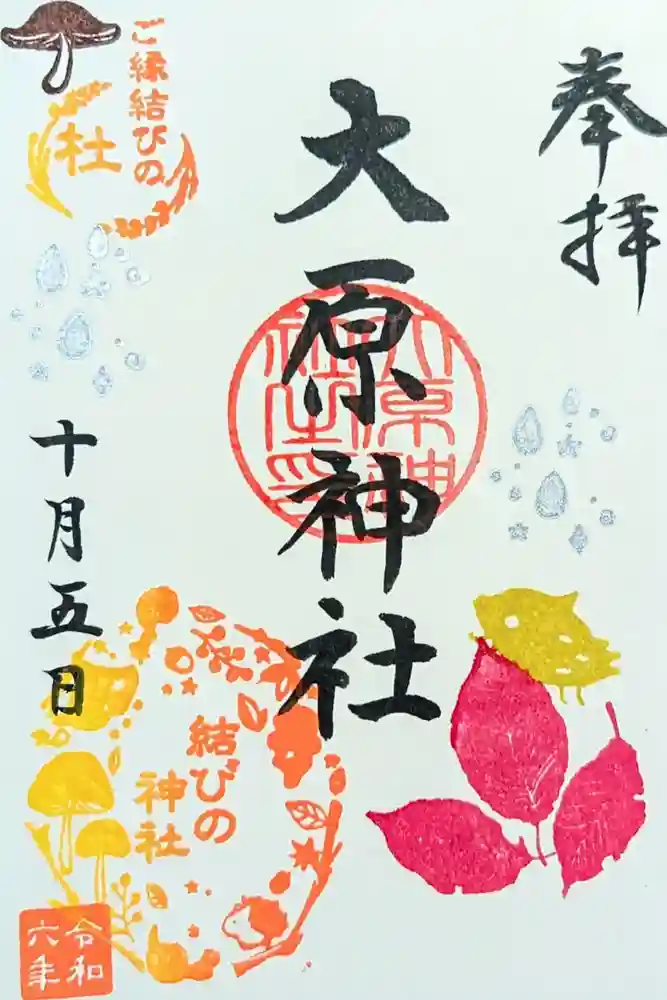 奉拝
大原神社
大原神社之印
ご縁結びの
杜
十月五日
結びの
神社
令和
六年